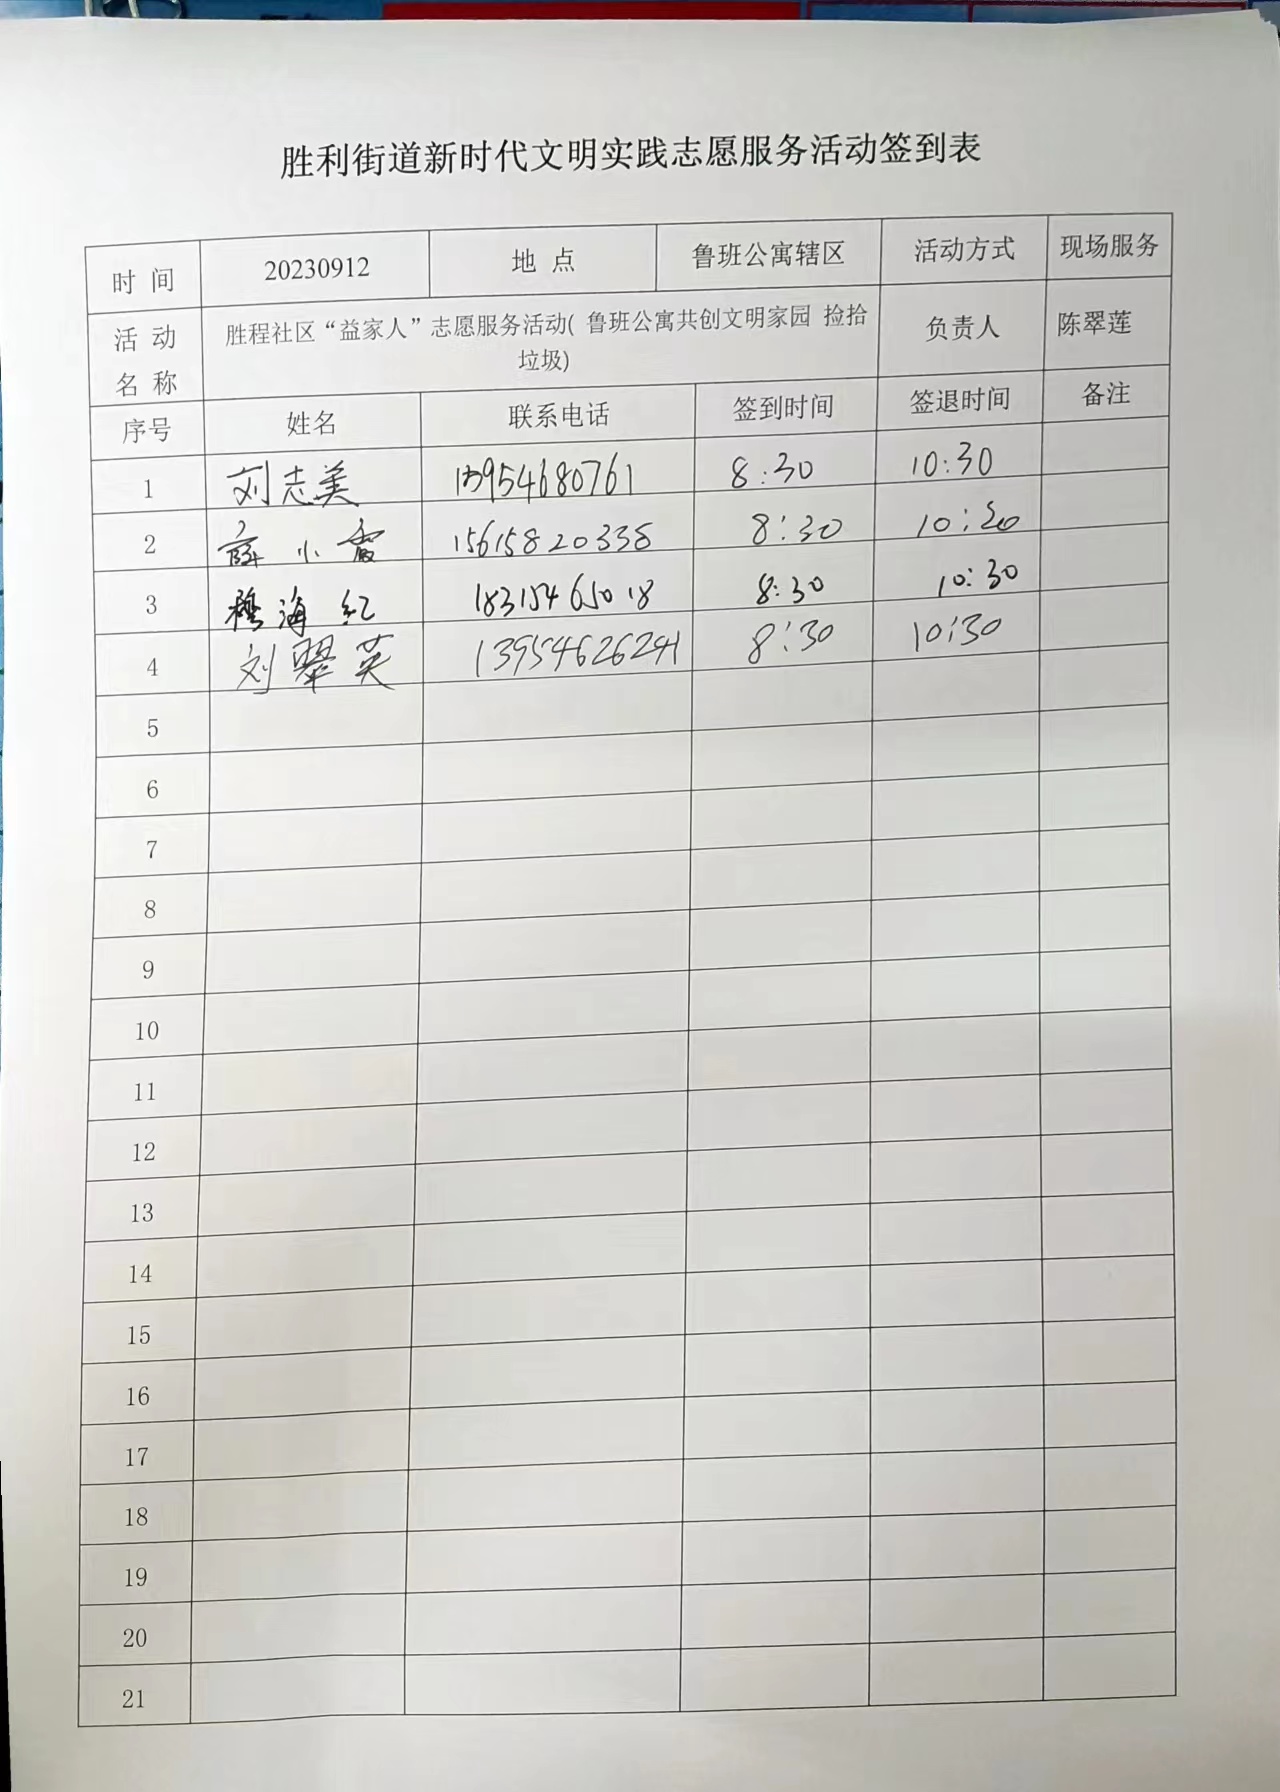 胜利街道新时代文明实践志愿服务活动签到表
时 间 20230912 地 点 鲁班公寓辖区 活动方式 现场服务
活 动 名 称 胜程社区“益家人”志愿服务活动( 鲁班公寓共创文明家园 捡拾 负责人 陈翠莲
垃圾)
序号 姓名 联系电话 签到时间 签退时间 备注
1 刘志美 13954680761 8:30 10:30
2 薛小霞 15615820338 8:30 10:20
3 穆海红 18315465018 8:30 10:30
4 刘翠英 13954626241 8:30 10:30
5
6
7
8
9
10
11
12
13
14
15
16
17
18
19
20
21